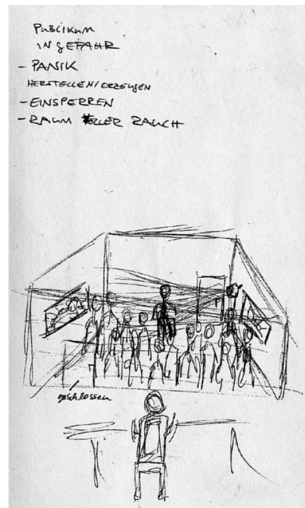 PUBLIKUM
IN GEFAHR
- PANIK
HERSTELLEN/ERZEUGEN
- EINSPERREN
- RAUM VOLLER RAUCH
geschlossen